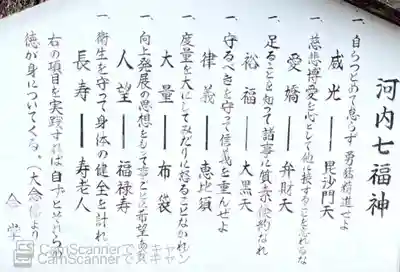 河内七福神
一、自らつとめて怠らず勇猛精進せよ
威光 ── 毘沙門天
一、慈悲博愛を心として他に接することを忘れるな
愛嬌 ── 弁財天
一、足ることを知って諸事に質素倹約なれ
裕福 ── 大黒天
一、守るべきを守って信義を重んぜよ
律義 ── 恵比須
一、度量を大にしてみだりに怒ることなかれ
大量 ── 布袋
一、向上発展の思想をもって事ごとに希望
人望 ── 福禄寿
一、衛生を守って身体の健全を計れ
長寿 ── 寿老人
右の項目を実践すれば自ずとそれらの
徳が身についてくる。
CamScannerでスキャン
CamScannerでスキャン